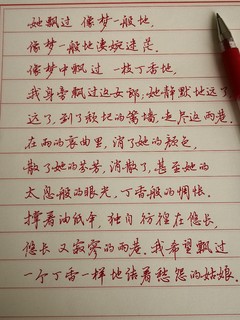 她飘过 像梦一般地
像梦一般地凄婉迷茫.
像梦中飘过 一枝丁香地,
我身旁飘过这女郎,她静默地远了
远了,到了颓圮的篱墙,走尽这雨巷.
在雨的哀曲里,消了她的颜色
散了她的芬芳,消散了,甚至她的
太息般的眼光,丁香般的惆怅.
撑着油纸伞,独自彷徨在悠长,
悠长又寂寥的雨巷.我希望飘过
一个丁香一样地结着愁怨的姑娘.